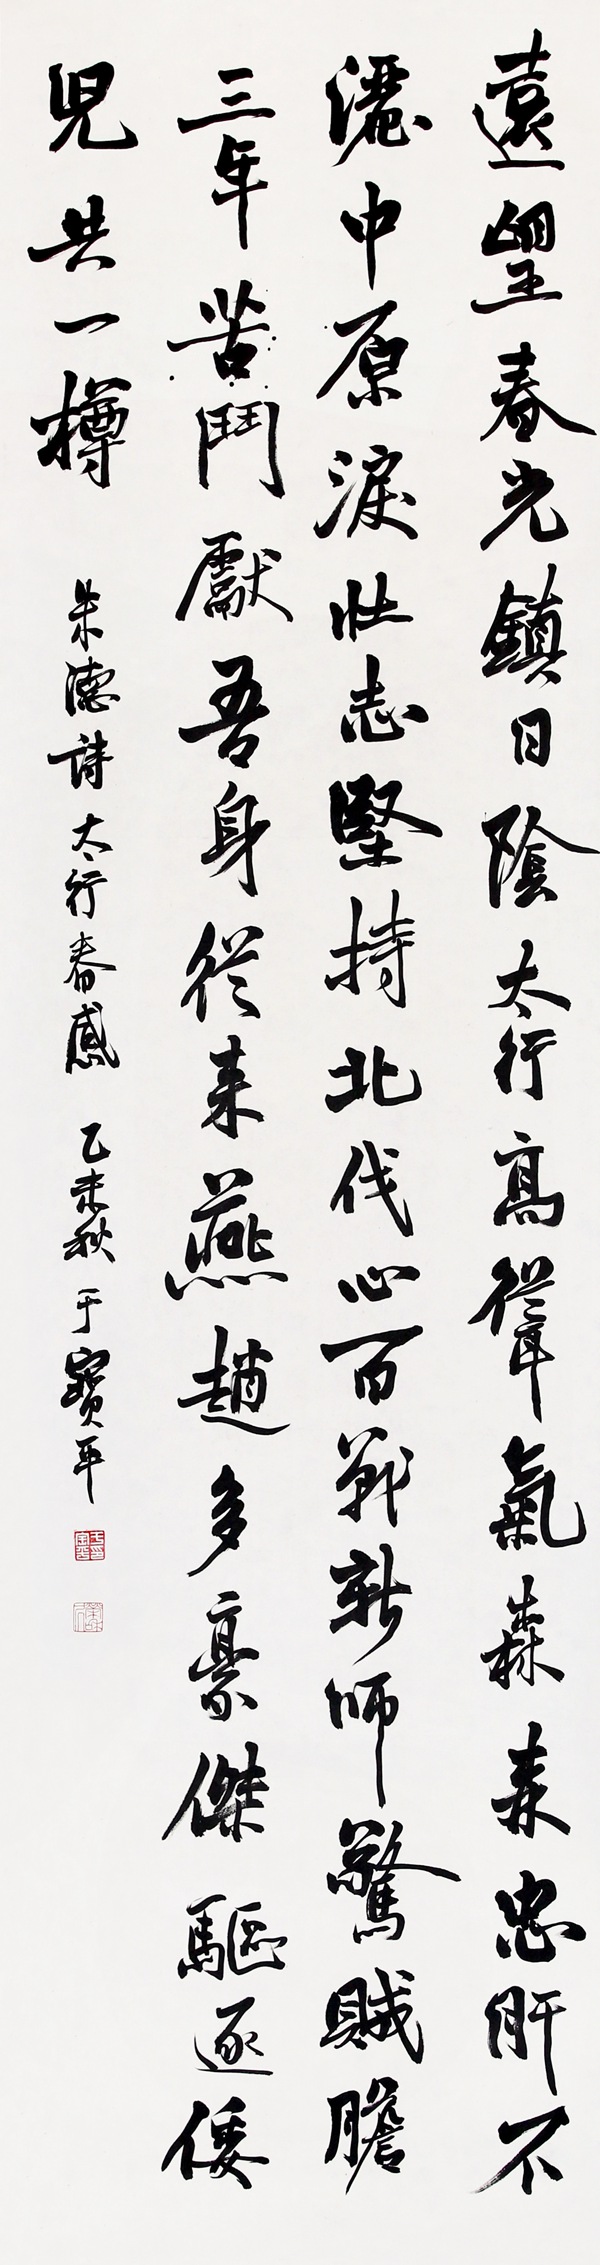 遠望春光鎮日陰太行高聳氣森森忠肝不
灑中原淚壯志堅持北伐心百戰新師驚賊膽
三年苦鬥獻吾身從来燕趙多豪傑驅逐倭
児共一樽 朱德詩太行春感 乙未秋于寶平